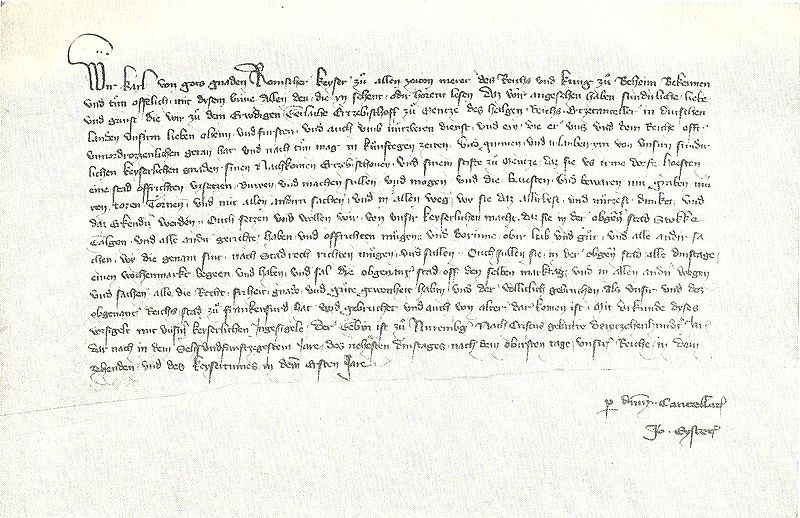 Wir karl von gots gnaden Romischer keyser zů allen zeiten merer des Reichs und kung zů Beheim Bekennen
und tůn offelich mit dysem brive allen den die yn sehent odir horent lesen Daz wir angesehen haben sůnderliche liebe
und gunst die wir zů dem Erwdigen Gerlache Ertzebischoff zů Mentze des heilgen Reichs Ertzecanceller in dutschen
landen unsirm lieben oheim und fursten und auch umb nutzberen dienst und ere die er uns und dem Reiche offt
unvordrozzenlichen getan hat und nach tůn mag in kůnftegen zeiten Und gunnen und irlauben ym von unsirn sundir
lichen keyserlichen gnaden sinen Nachkomen Ertzebischoven und sinem stifte zů Mentze daz sie uz irme dorfe
eine stad offrichten buwen und machen sullen und mogen und die bevesten und bewaren mit graben mů
ren toren Tornen und mit allen andirn sachen und in allen weg wy sie daz allirbest und nutzest dunket und
daz Erkenden werden Ouch setzen und wollen wir von unsir keyserlichen macht daz sie in der obgen stad Stokke
Galgen und alle andir gerichte haben und offrichten mugen und dorinne obir leib und gůt und alle andir sa
chen wy die genant sint nach Stad recht richten mugen und sullen Ouch sullen sie in der obgen stad alle dinstage
einen wochenmarkt begeen und haben und sal die obgenant stad off den selben marktag und in allen andirn wegen
und sachen alle die Recht friheit gnade und gůte gewonheit haben und der volliclich gebruchen als unsir und des
obgenant Reichs stad zu Frankenfurd hat und gebruchet und auch von alter dar komen ist Mit urkunde dyses
vorsigelt mit unsirm keyserlichen Ingesigele Der Geben ist zů Nuremberg Nach Cristus geburte drwtzehenhundirt Jar
dar nach in dem Sechsundfumftzegestem Jare des nehesten dinstages nach dem obirsten tage unsir Reiche in dem
zehenden und des keysertumes in dem Ersten Jare
p dnm Cancellar
Jo Eystet